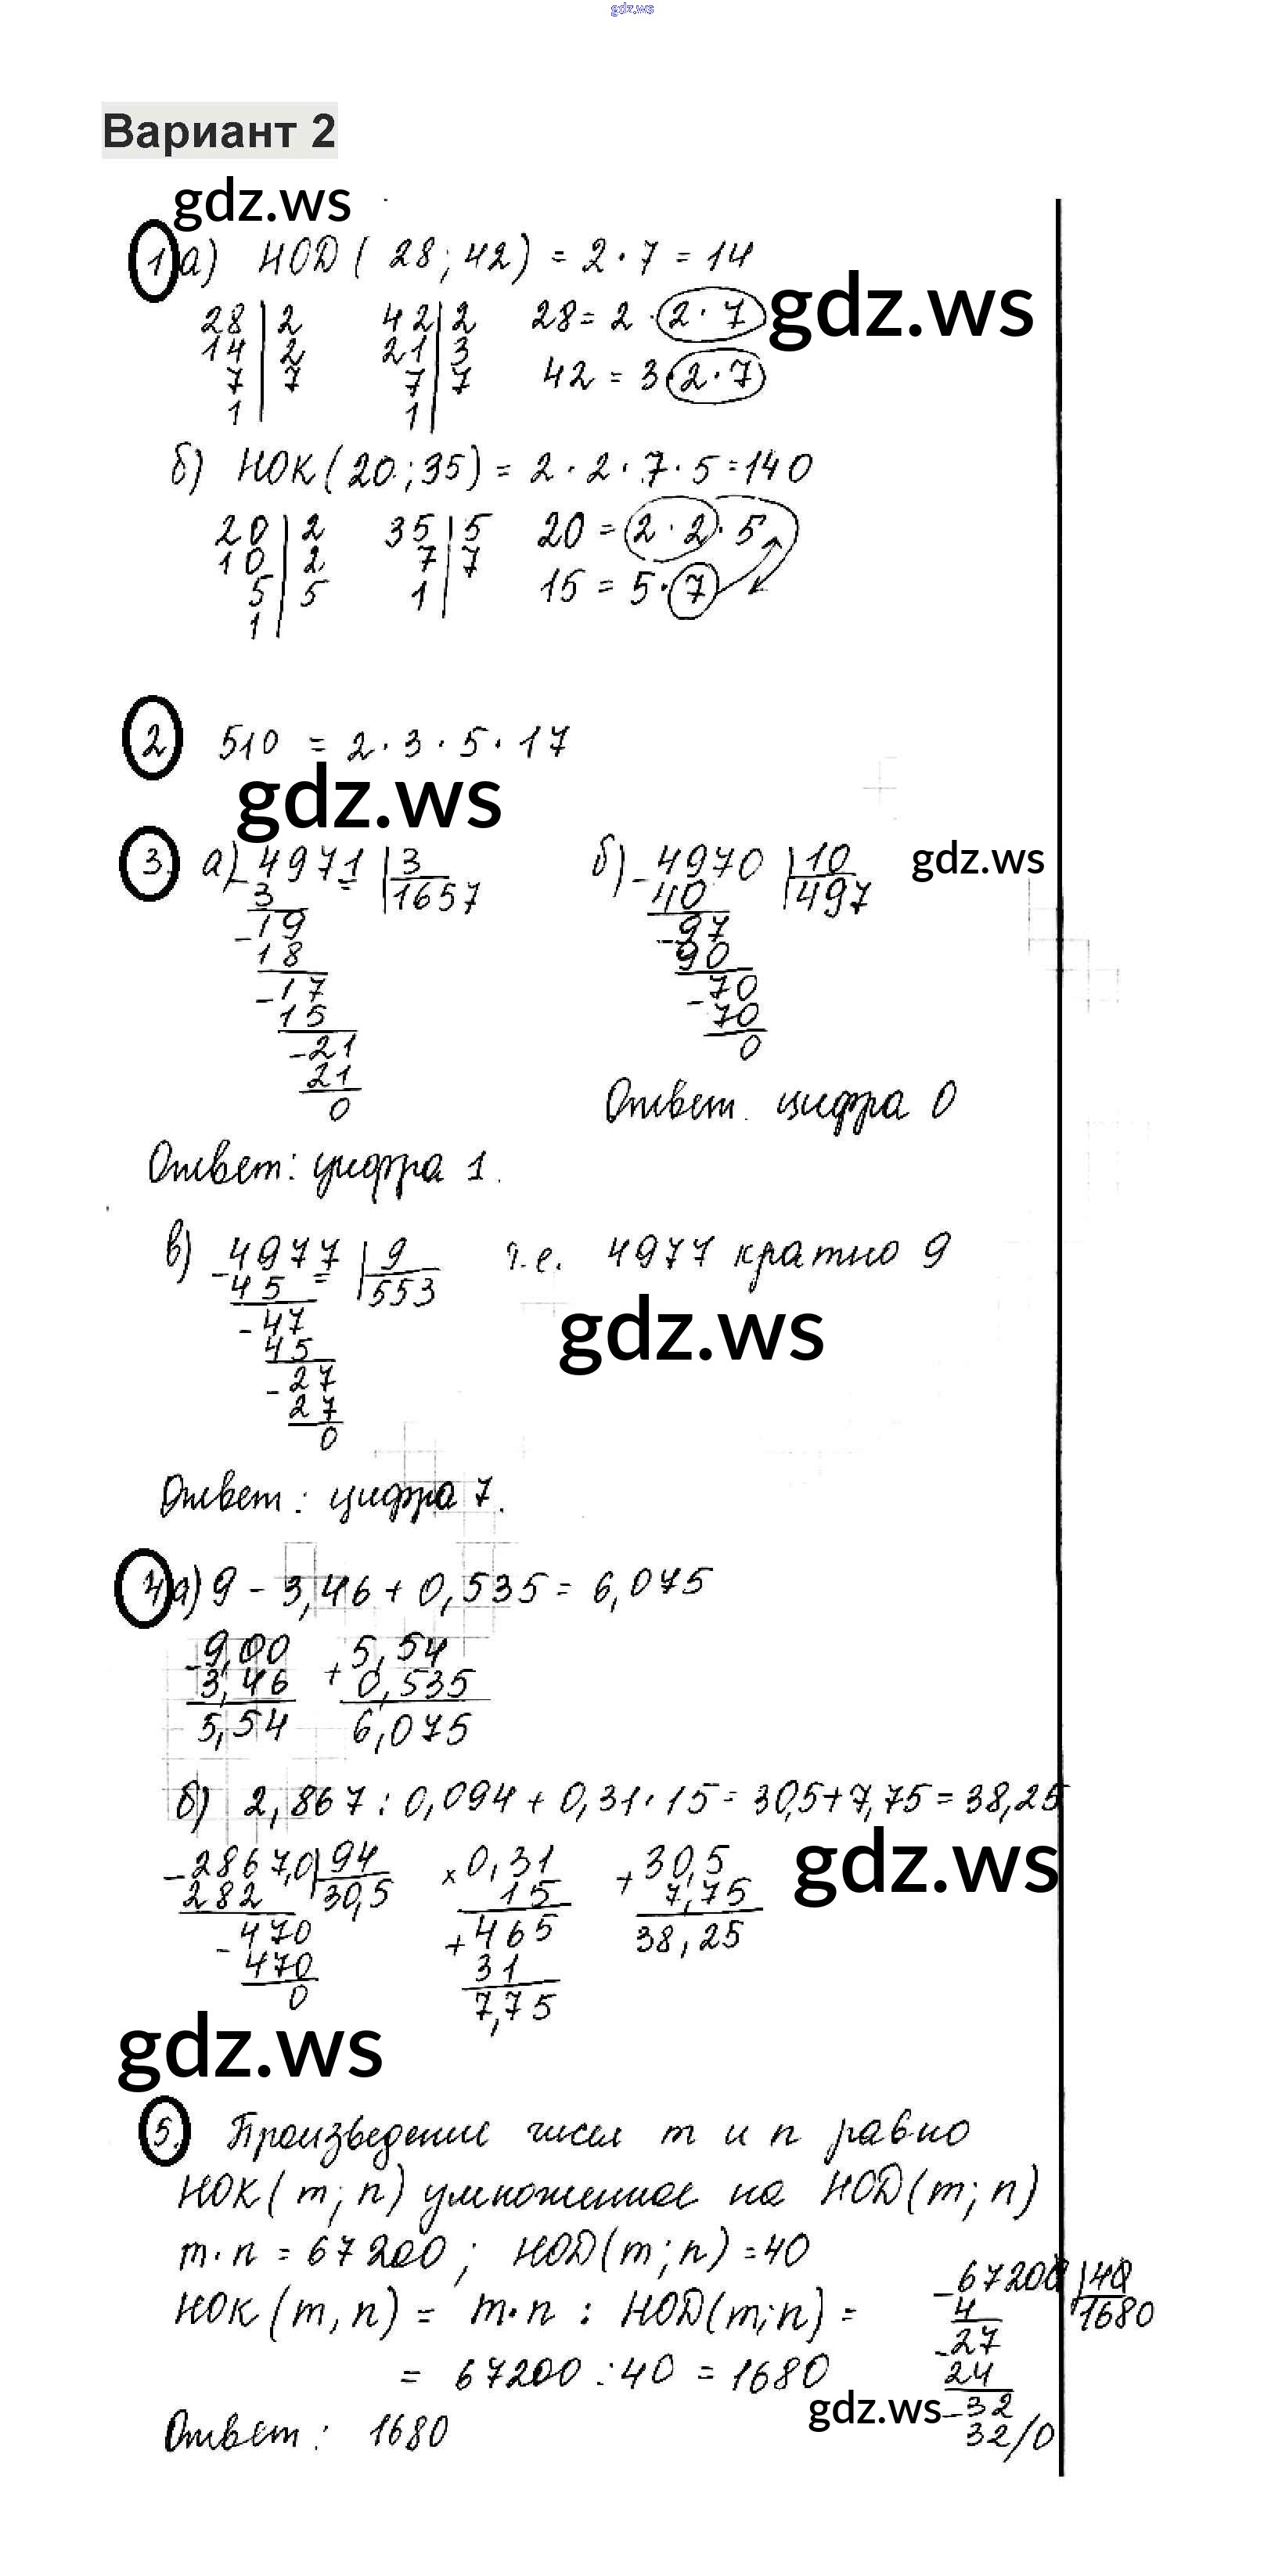 gdz.ws
Вариант 2
gdz.ws
1 а) НОД ( 28 ; 42 ) = 2 · 7 = 14
gdz.ws
28 | 2 42 | 2 28 = 2 · 2 · 7
14 | 2 21 | 3 42 = 3 · 2 · 7
7 | 7 7 | 7
1 1
б) НОК ( 20 ; 35 ) = 2 · 2 · 7 · 5 = 140
20 | 2 35 | 5 20 = 2 · 2 · 5
10 | 2 7 | 7 15 = 5 · 7
5 | 5 1
1
2 510 = 2 · 3 · 5 · 17
gdz.ws
3 а) - 4971 | 3 б) - 4970 | 10
gdz.ws
3 1657 40 497
- 19 - 97
18 90
- 17 - 70
15 70
- 21 0
21
0
Ответ. цифра 0
Ответ: цифра 1.
в) - 4977 | 9 т.е. 4977 кратно 9
45 553
gdz.ws
- 47
45
- 27
27
0
Ответ: цифра 7.
4 а) 9 - 3,46 + 0,535 = 6,075
- 9,00 + 5,54
3,46 0,535
5,54 6,075
б) 2,867 : 0,094 + 0,31 · 15 = 30,5 + 7,75 = 38,25
gdz.ws
- 2867,0 | 94 × 0,31 + 30,5
282 30,5 15 7,75
- 470 + 465 38,25
470 31
0 7,75
gdz.ws
5. Произведение чисел m и n равно
НОК ( m ; n ) умноженное на НОД ( m ; n )
m · n = 67200 ; НОД ( m ; n ) = 40
НОК ( m, n ) = m · n : НОД ( m ; n ) =
= 67200 : 40 = 1680
- 67200 | 40
4 1680
- 27
24
- 32
32/0
gdz.ws
Ответ: 1680